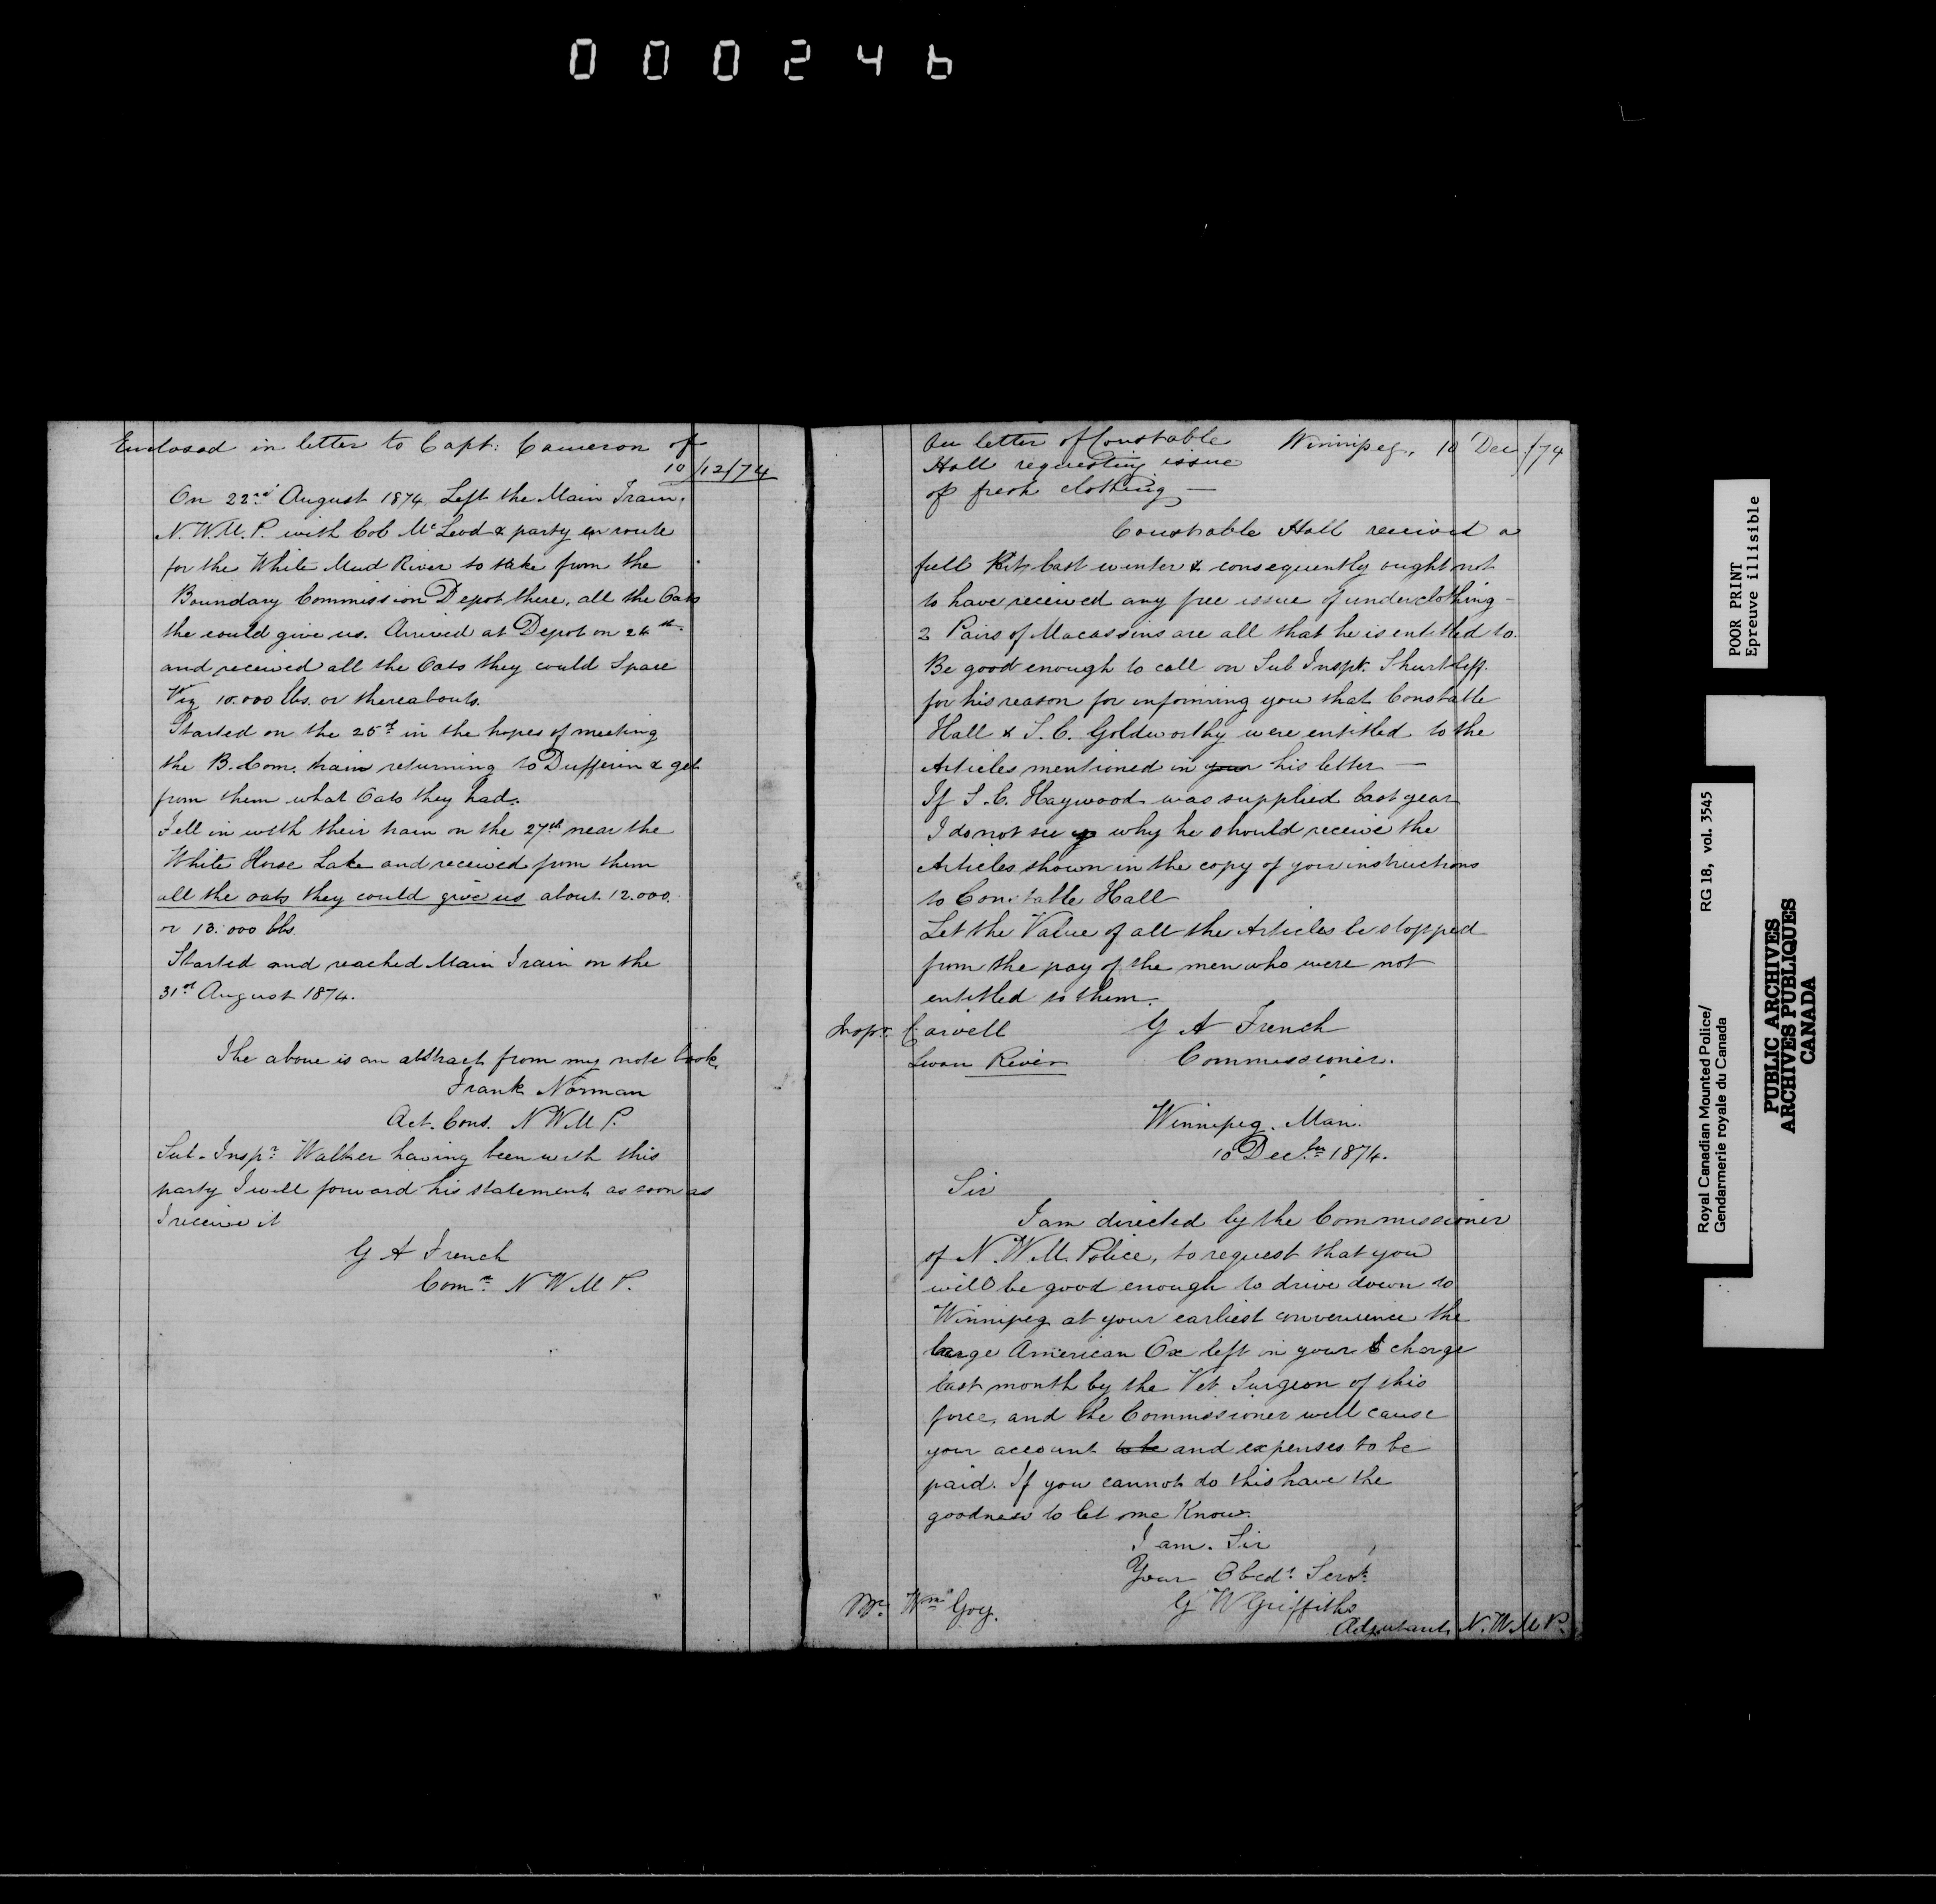 000246
Enclosed in letter to Capt: Cameron of
10/12/74
On 22nd August 1874 Left the Main Train.
N.W.M.P. with Col McLeod & party en route
for the White Mud River to take from the
Boundary Commission Depot there, all the Oats
the could give us. Arrived at Depot on 24th.
and received all the Oats they could Spare
Viz 10.000 lbs. or thereabouts.
Started on the 25th in the hopes of meeting
the B. Com. train returning to Dufferin & get
from them what Oats they had.
Fell in with their train on the 27th near the
White Horse Lake and received from them
all the oats they could give us about 12.000
or 13.000 lbs.
Started and reached Main Train on the
31st August 1874.
The above is an abstract from my note book
Frank Norman
Act. Cons. N W M P.
Sub-Inspr Walker having been with this
party I will forward his statement as soon as
I receive it
G A French
Comr. N W M P.
On letter of Constable
Hall requesting issue
of fresh clothing —
Winnipeg, 10 Dec./74
Constable Hall received a
full Kit last winter & consequently ought not
to have received any free issue of underclothing -
2 Pairs of Macassins are all that he is entitled to.
Be good enough to call on Sub Inspr. Shurtleff.
for his reason for informing you that Constable
Hall & S. C. Goldworthy were entitled to the
Articles mentioned in your his letter —
If S. C. Haywood was supplied last year
I do not see why he should receive the
Articles shown in the copy of your instructions
to Constable Hall
Let the Value of all the Articles be stopped
from the pay of the men who were not
entitled to them.
Inspr. Carvell
Swan River
G A French
Commissioner.
Winnipeg. Man.
10 Decbr 1874.
Sir
I am directed by the Commissioner
of N. W. M. Police, to request that you
will be good enough to drive down to
Winnipeg at your earliest convenience the
large American Ox left in your charge
last month by the Vet Surgeon of this
force, and the Commissioner will cause
your account to be and expenses to be
paid. If you cannot do this have the
goodness to let me Know.
I am. Sir
Your Obedt Servt.
G W Griffiths
Adjutant, N. W. M P.
Mr. Wm Goy.
POOR PRINT
Epreuve illisible
Royal Canadian Mounted Police/ RG 18, vol. 3545
Gendarmerie royale du Canada
PUBLIC ARCHIVES
ARCHIVES PUBLIQUES
CANADA